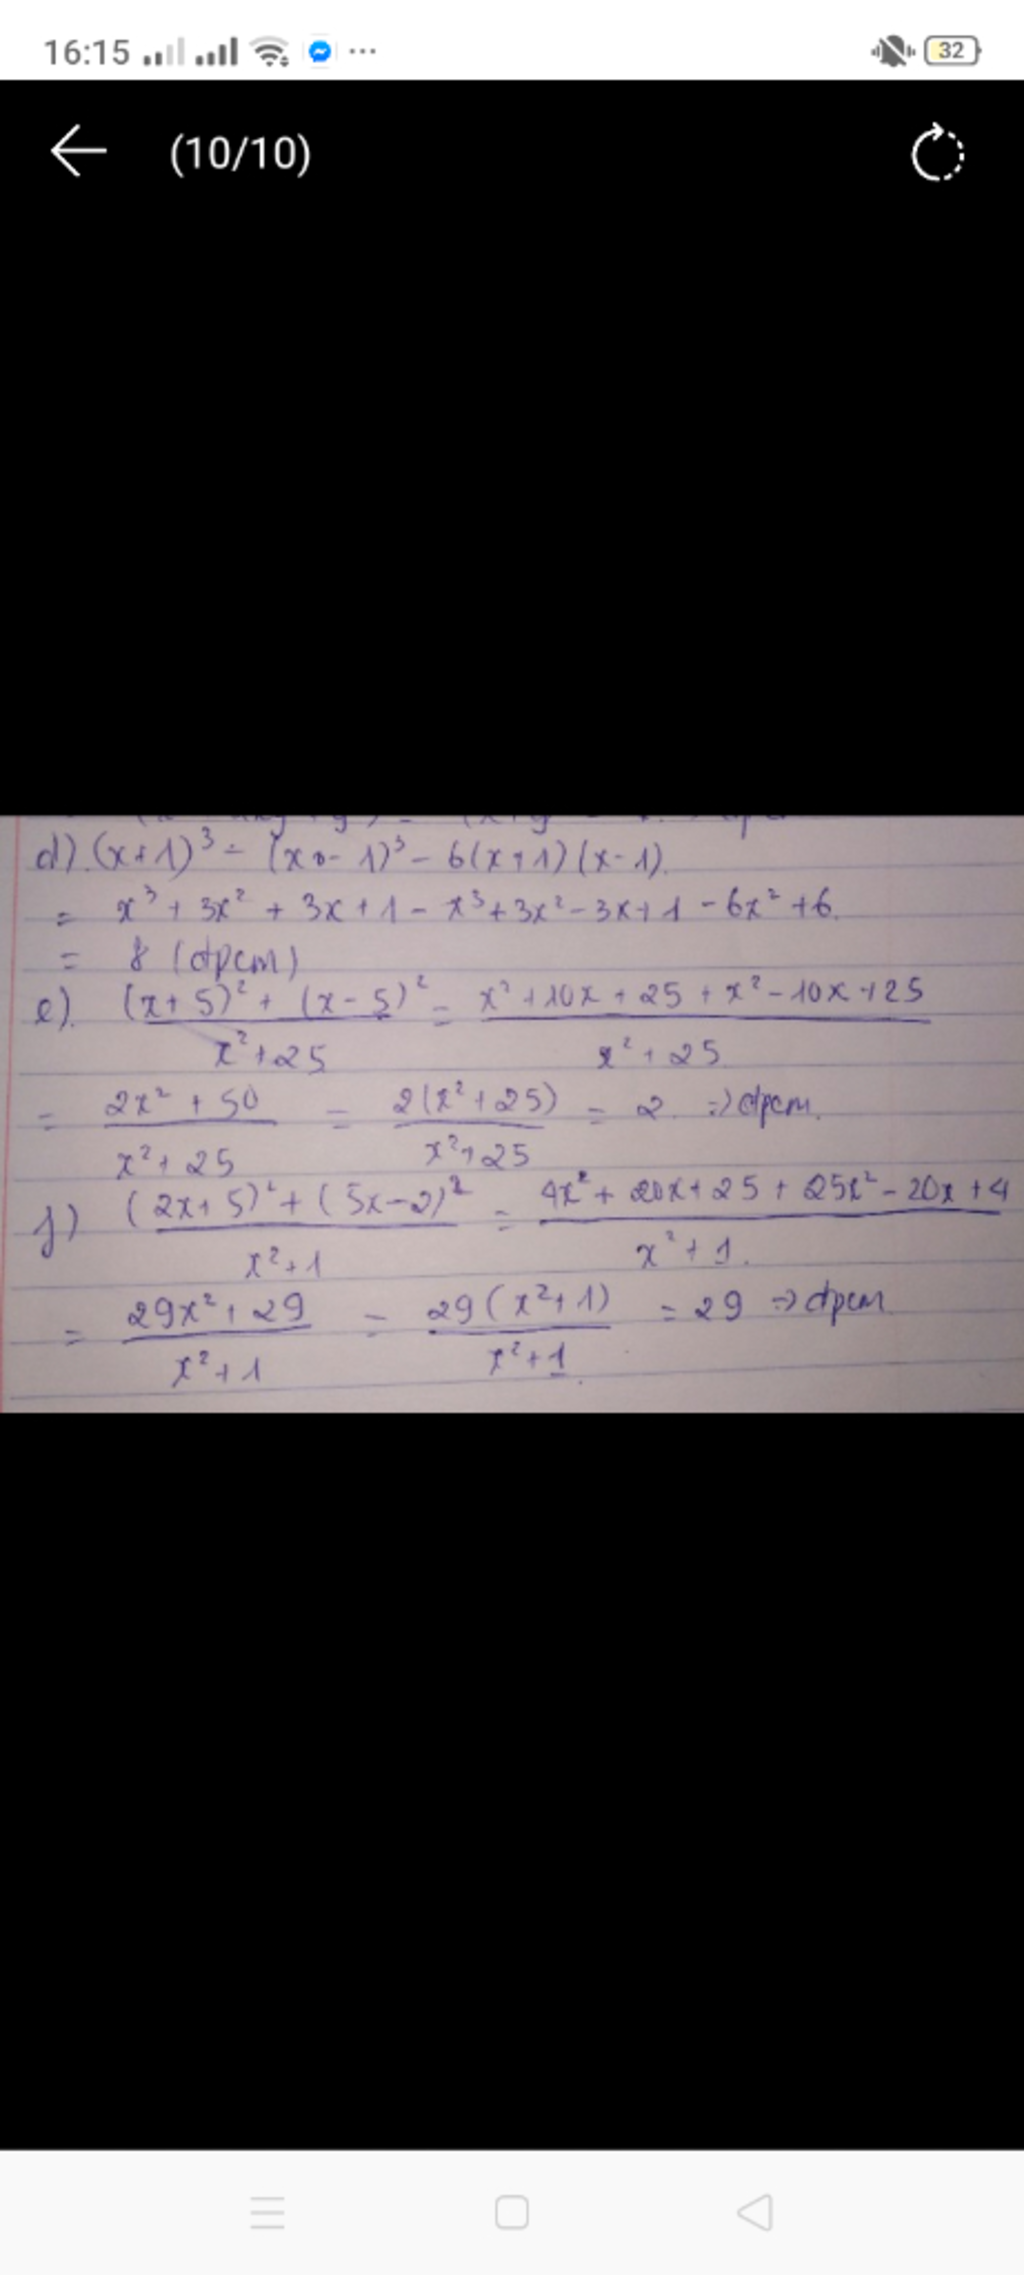 16:15 ... 32
(10/10)
d). (x+1)³ - (x - 1)³ - 6(x+1)(x-1).
= x³ + 3x² + 3x + 1 - x³ + 3x² - 3x + 1 - 6x² + 6.
= 8 (đpcm)
e). (x+5)² + (x-5)² / x²+25 = x² + 10x + 25 + x² - 10x + 25 / x² + 25
= 2x² + 50 / x² + 25 = 2(x² + 25) / x² + 25 = 2. => đpcm.
f) (2x+5)² + (5x-2)² / x²+1 = 4x² + 20x + 25 + 25x² - 20x + 4 / x² + 1.
= 29x² + 29 / x² + 1 = 29(x²+1) / x²+1. = 29 => đpcm